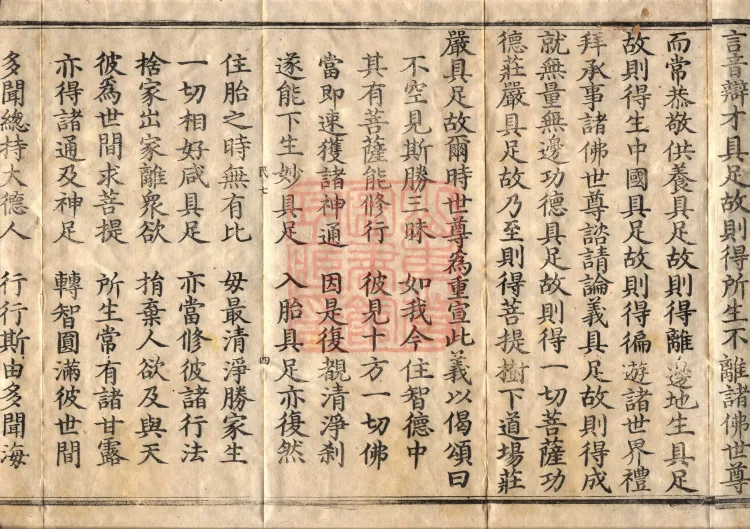 言音辯才具足故則得所生不離諸佛世尊
而常恭敬供養具足故則得離邊地生具足
故則得生中國具足故則得徧遊諸世界禮
拜承事諸佛世尊諮請論義具足故則得成
就無量無邊功德具足故則得一切菩薩功
德莊嚴具足故乃至則得菩提樹下道場莊
嚴具足故爾時世尊為重宣此義以偈頌曰
不空見斯勝三昧 如我今住智德中
其有菩薩能修行 彼見十方一切佛
當即速獲諸神通 因是復覩清淨刹
遂能下生妙具足 入胎具足亦復然
民七 四
住胎之時無有比 毋最清淨勝家生
一切相好咸具足 亦當修彼諸行法
捨家出家離眾欲 捐棄人欲及與天
彼為世間求菩提 所生常有諸甘露
亦得諸通及神足 轉智圓滿彼世間
多聞總持大德人 行行斯由多聞海